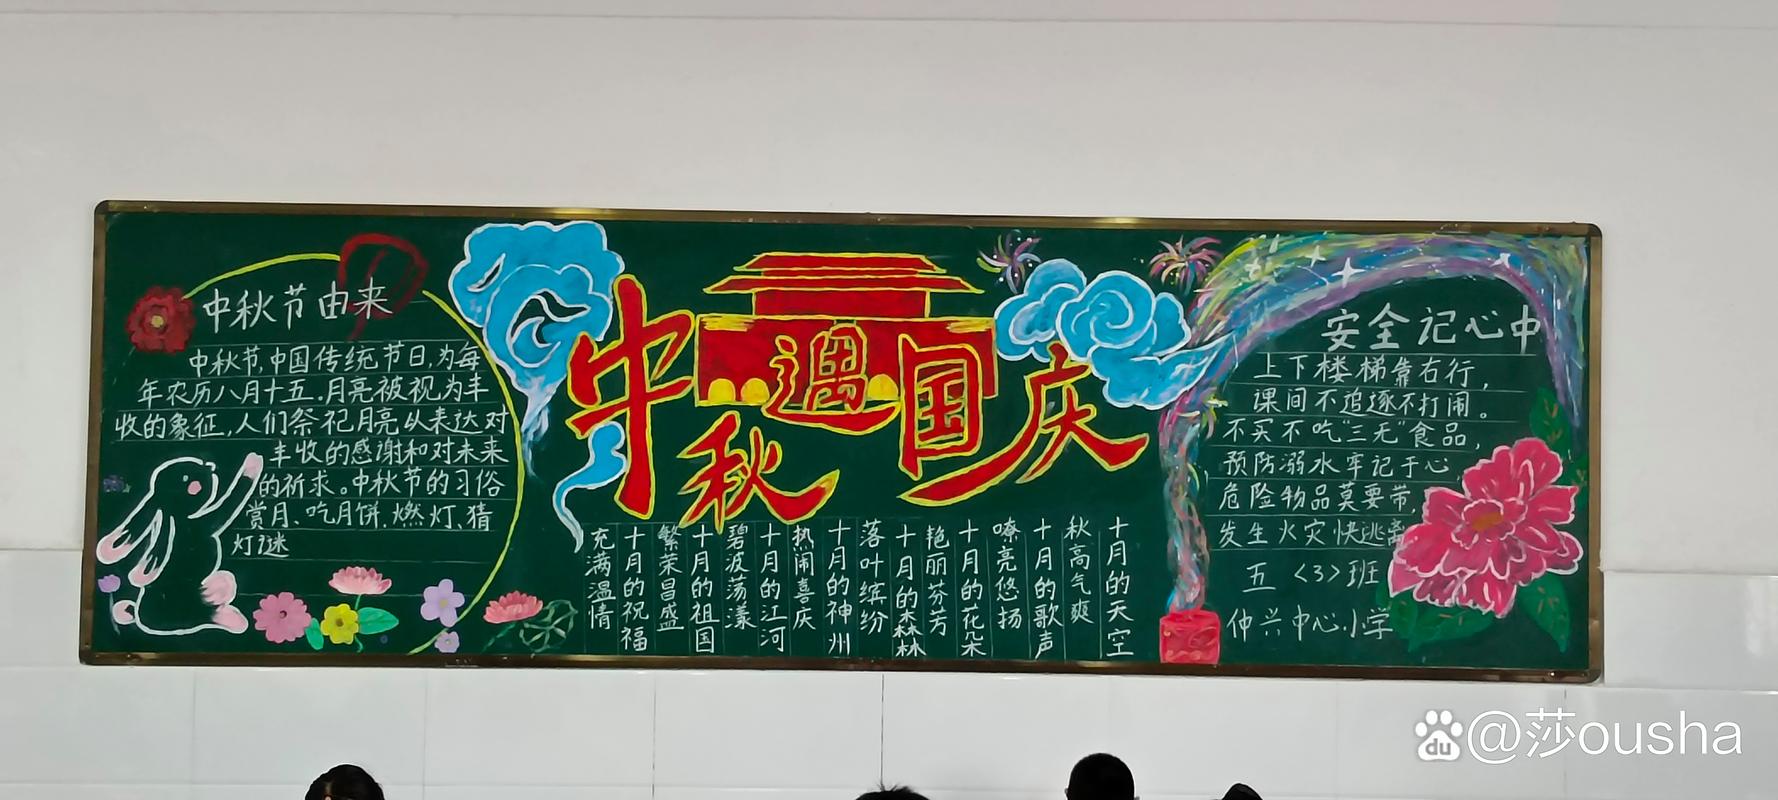 中秋节由来
中秋节,中国传统节日,为每
年农历八月十五.月亮被视为丰
收的象征,人们祭祀月亮以来达对
丰收的感谢和对未来
的祈求。中秋节的习俗
赏月、吃月饼.燃灯、猜
灯谜
中秋
遇国庆
十月的天空
秋高气爽
十月的歌声
嘹亮悠扬
十月的花朵
艳丽芬芳
十月的森林
落叶缤纷
十月的神州
热闹喜庆
十月的江河
碧波荡漾
十月的祖国
繁荣昌盛
十月的祝福
充满温情
安全记心中
上下楼梯靠右行,
课间不追逐不打闹。
不买不吃"三无"食品,
预防溺水牢记于心
危险物品莫要带,
发生火灾快逃离
五〈3〉班
仲兴中心小学
du @莎ousha